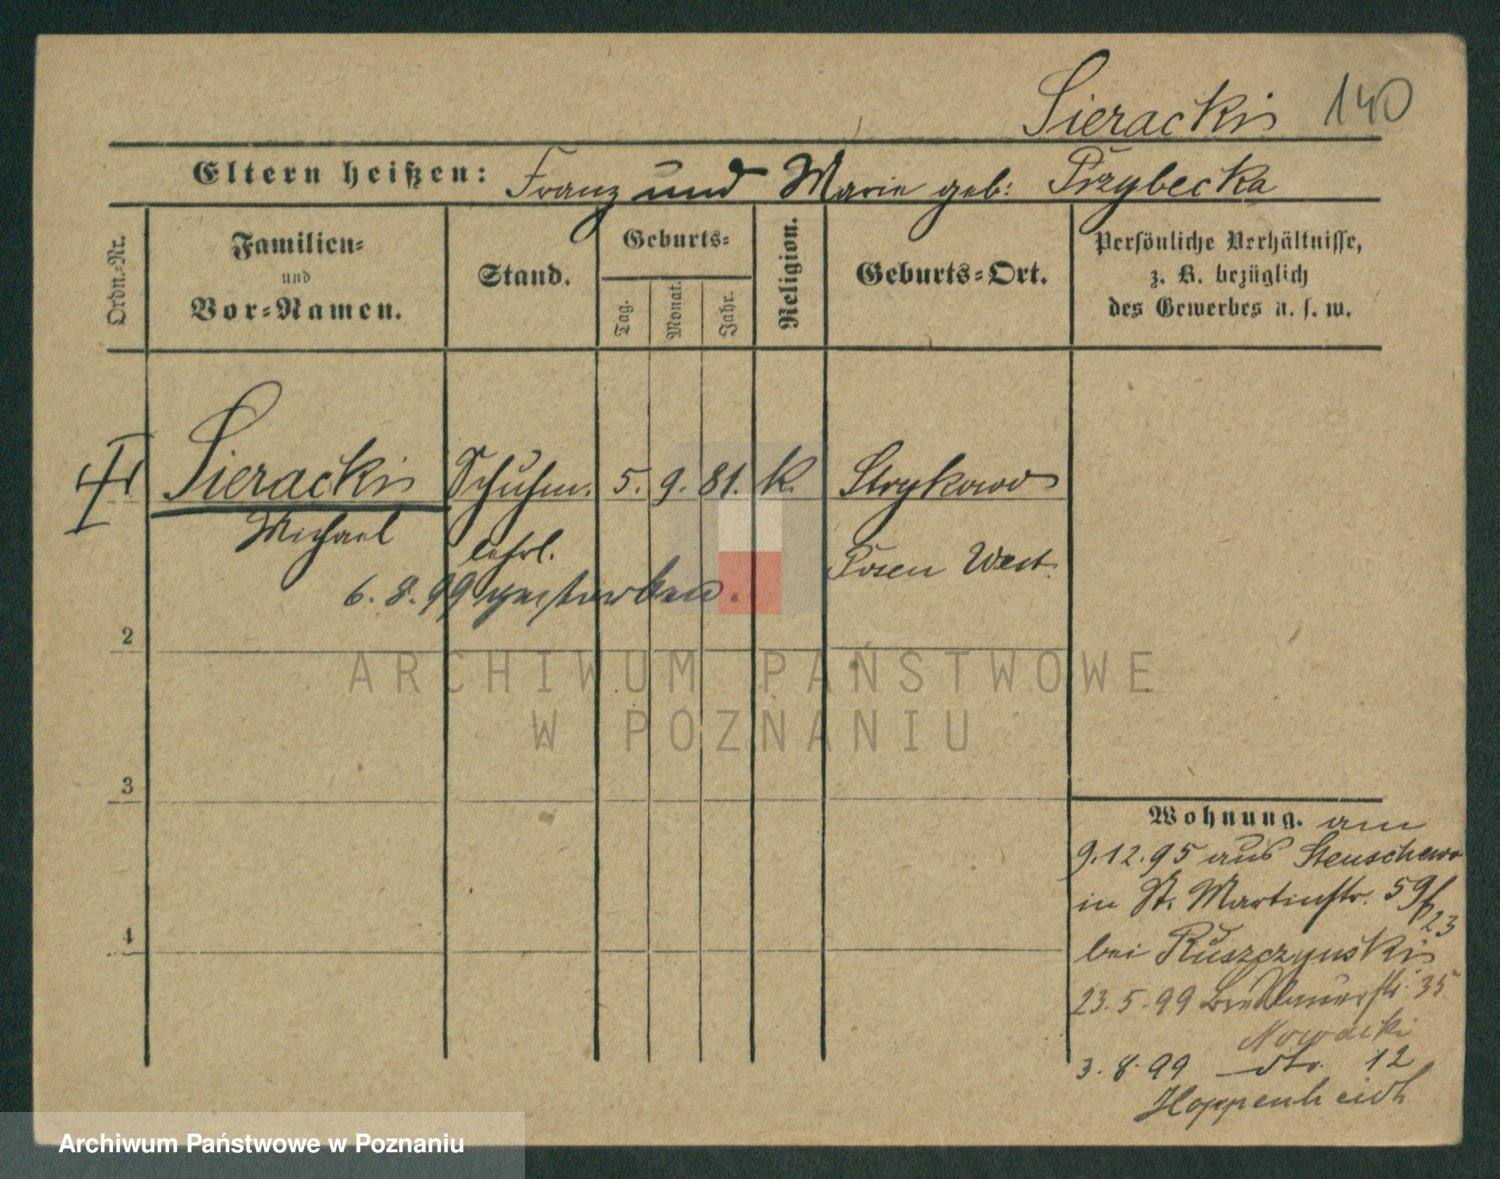 Sieracki 140
Eltern heißen: Franz und Marie geb: Przybecka
Ordn.-Nr.
Familien-
und
Vor-Namen.
Stand.
Geburts-
Tag.
Monat.
Jahr.
Religion.
Geburts-Ort.
Persönliche Verhältnisse,
z. B. bezüglich
des Gewerbes u. s. w.
Sieracki Schuhm. 5. 9. 81. K. Strykowo
Michael lehrl. Posen West.
6. 8. 99 gestorben.
2
3
4
Wohnung. am
9.12.95 aus Stenschewo
in St. Martinstr. 59/23
bei Ruszczynski
23.5.99 Breslauerstr. 35
Nowacki
3.8.99 dto. 12
Hoppenheidt
ARCHIWUM PAŃSTWOWE
W POZNANIU
Archiwum Państwowe w Poznaniu